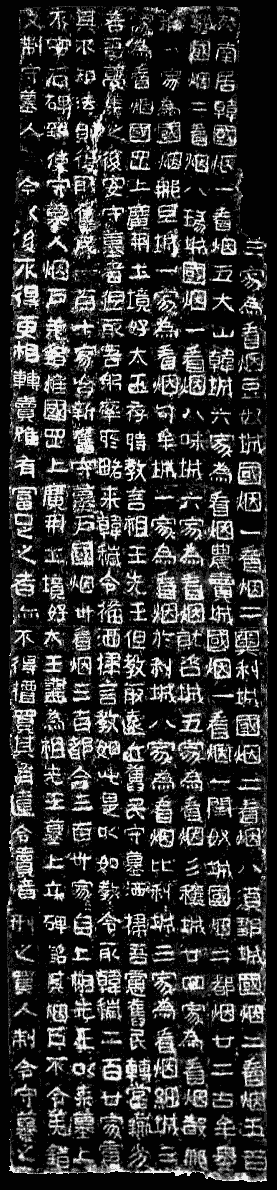 三家為看烟豆奴城國烟一看烟二奧利城國烟二看烟八須鄒城國烟二看烟五百
殘南居韓國烟一看烟五大山韓城六家為看烟農賣城國烟一看烟一閏奴城國烟二都烟廿二古牟婁
城國烟二看烟八瑑城國烟一看烟八味城六家為看烟就咨城五家為看烟彡穰城廿四家為看烟散那
城一家為國烟那旦城一家為看烟勾牟城一家為看烟於利城八家為看烟比利城三家為看烟細城三
家為看烟國罡上廣開土境好太王存時教言祖王先王但教取遠近舊民守墓洒掃吾慮舊民轉當羸劣
若吾萬年之後安守墓者但取吾躬率所略來韓穢令備洒掃言教如此是以如教令取韓穢二百廿家慮
其不知法則復取舊民一百十家合新舊守墓戶國烟卅看烟三百都合三百卅家自上祖先王以來墓上
不安石碑致使守墓人烟戶差錯惟國罡上廣開土境好太王盡為祖先王墓上立碑銘其烟戶不令差錯
又制守墓人自今以後不得更相轉賣雖有富足之者亦不得擅買其有違令賣者刑之買人制令守墓之